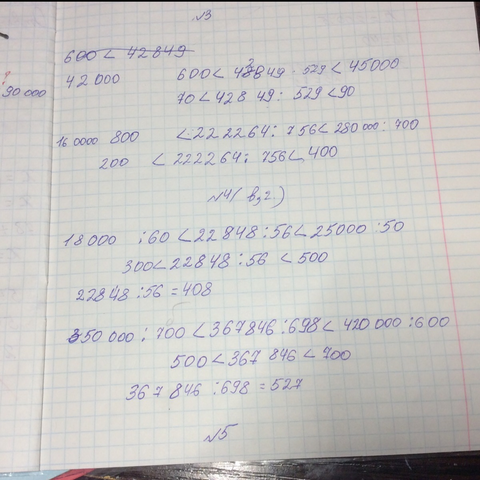 №3
600 < 42849
42000 600 < 42849 : 529 < 45000
90 000
70 < 428 49 : 529 < 90
16.0000 800 < 222264 : 756 < 280 000 : 400
200 < 222264 : 756 < 400
№4 (в,г.)
18000 : 60 < 22848 : 56 < 25000 : 50
300 < 22848 : 56 < 500
22848 : 56 = 408
350 000 : 700 < 367846 : 698 < 420 000 : 600
500 < 367 846 < 700
367 846 : 698 = 527
№5